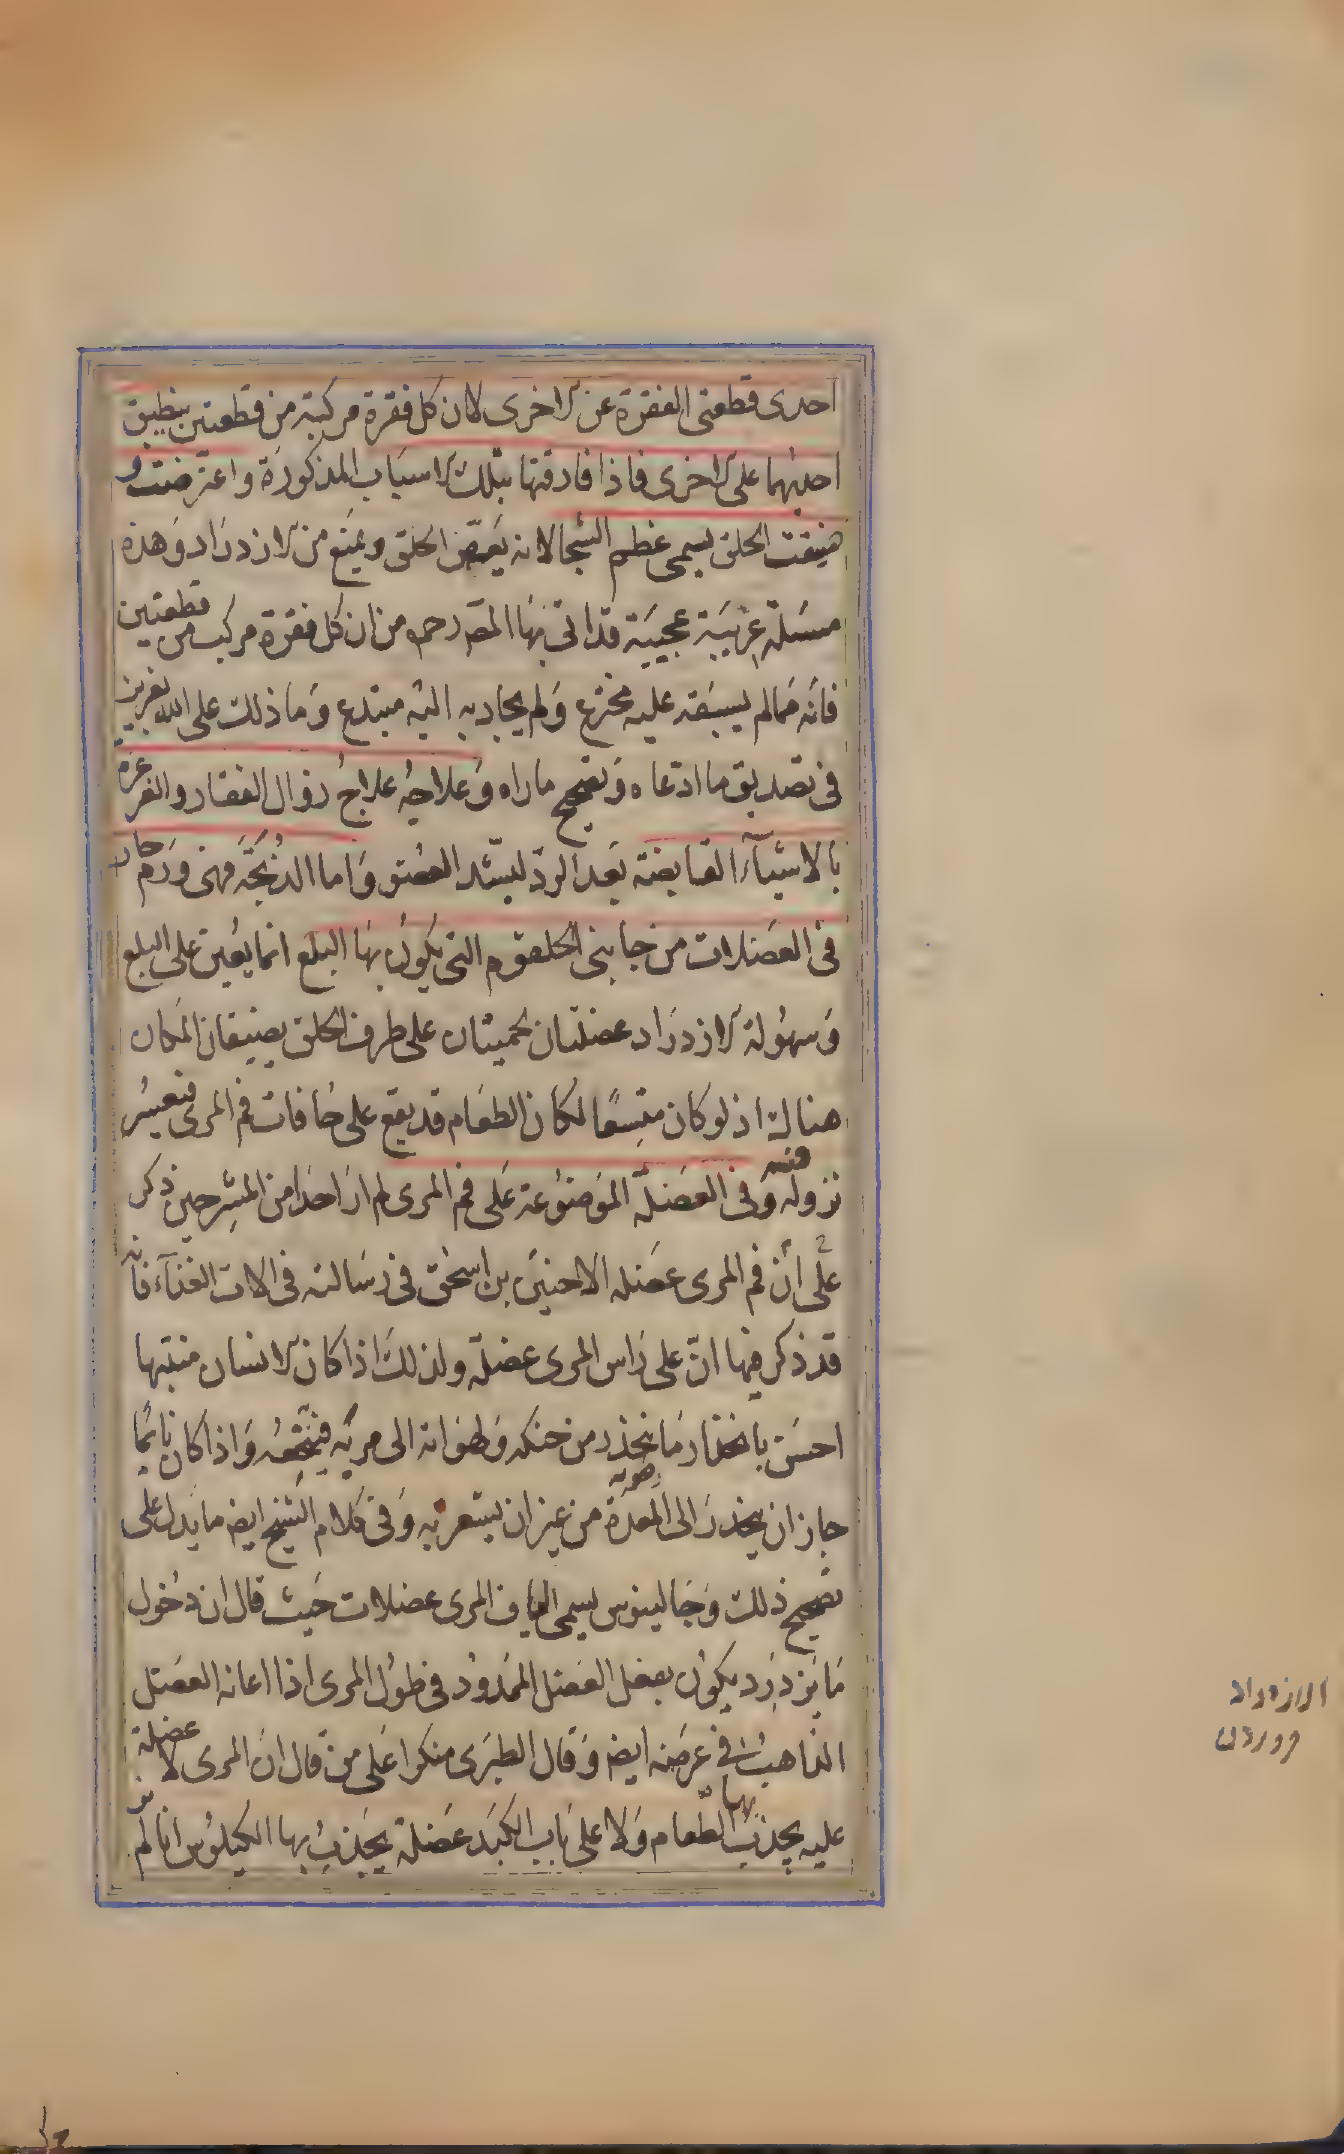 احدى قطعتى الفقرة عن الاخرى لان كل فقرة مركبة من قطعتين ينطبق
احديهما على الاخرى فاذا فارقتها بتلك الاسباب المذكورة واعترضت و
ضيقت الحلق يسمى عظم الشجا لانه يغصّ الحلق ويمنع من الازدراد وهذه
مسئلة غريبة عجيبة قد اتى بها المصّ رحمه من ان كل فقرة مركب من قطعتين
فانه مما لم يسبقه عليه مخترع ولم يجاد به اليه مبتدع وما ذلك على الله بعزيز
فى تصديق ما ادّعاه وتصحيح ماراه وعلاجه علاج زوال الفقار والغرغرة
بالاشيآء القابضة بعد الردّ ليشتد العضو واما الذبحة فهى ورم حار
فى العضلات من جانبى الحلقوم التى يكون بها البلع انما يعين على البلع
وسهولة الازدراد عضلتان لحميتان على طرف الحلق يضيقان المكان
هناك اذ لو كان متسعًا لكان الطعام قد يقع على حافات فم المرى فتعسر
نزوله وفى العضلة الموضوعة على فم المرى لم ار احدا من المشرحين ذكر
على أن فم المرى عضله الا حنين بن اسحق فى رسالته فى الات الغذآء فانه
قد ذكر فيها انّ على راس المرى عضلة ولذلك اذا كان الانسان منتبها
احسّ بانحذار ما ينحذر من حنكه ولهواته الى مريه فيمنعه واذا كان نائمًا
جاز ان ينحذر الى المعدة من غير ان يشعر به وفى كلام الشيخ ايض ما يدل على
تصحيح ذلك وجالينوس يسمى الياف المرى عضلات حيث قال ان دخول
ما يزدرد يكون بفعل العضل الممدود فى طول المرى اذا اعانه العضل
الذاهب فى عرضه ايض وقال الطبرى منكرا على من قال ان المرى لا عضلة
عليه يجذب بها الطّعام ولا على باب الكبد عضلة يجذب بها الكيلوس انا لم
الازدراد